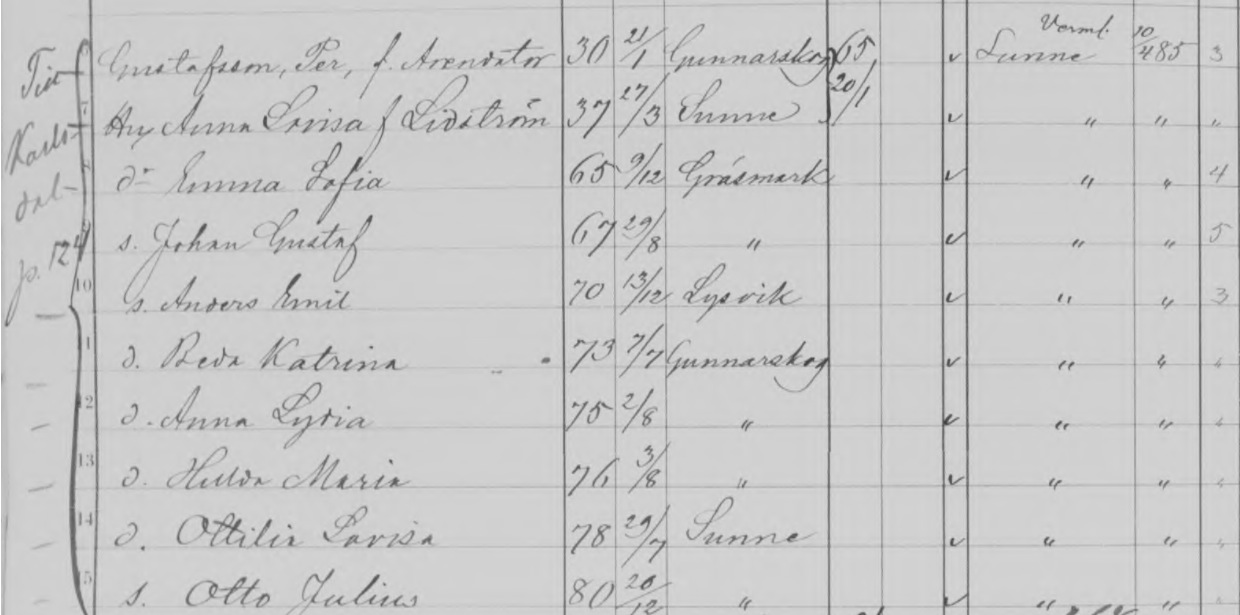 Verml.
Gustafsson, Per, f. Arendator 30 21/1 Gunnarskog 65 v Sunne 10/4 85 3
7 Hu Anna Lovisa f Lidström 37 27/3 Sunne 20/1 v " " "
8 dr Emma Sofia 65 9/12 Gräsmark v " " 4
s. Johan Gustaf 67 29/8 " v " " 5
10 s. Anders Emil 70 13/12 Lysvik v " " 3
11 d. Beda Katrina 73 7/7 Gunnarskog v " " "
12 d. Anna Lydia 75 2/8 " v " " "
13 d. Hulda Maria 76 3/8 " v " " "
14 d. Ottilia Lovisa 78 29/7 Sunne v " " "
15 s. Otto Julius 80 20/12 " v " " "
Till
Karls-
dal
p. 124